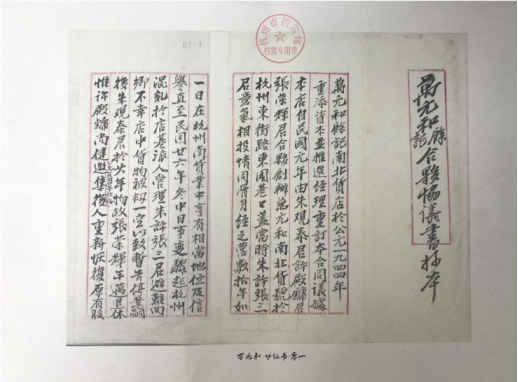 萬元和縣記合夥協議書抄本
萬元和縣記南北貨店於公元一九四四年
重添資本並推選經理重訂本合同議據
本店自民國元年由朱觀泰君許殿鏞君
張榮輝君合夥創辦萬元和南北貨號於
杭州東街路東園巷口蓋當時朱許張三
君意氣相投情同骨肉經之營數拾年如
一日在杭州南貨業中享有相當地位及信
譽直至民國廿六年冬中日事變驟起杭州
混亂於店巷派人管理朱許張三君避難回
鄉不幸店中貨物被刧一空以致暫告停業嗣
後朱觀泰君於廿八年物故張榮輝年邁退休
惟許殿鏞尚健邀集後人重新恢復原有股
杭州市档案馆
档案专用章
萬元和 协议书 卷一